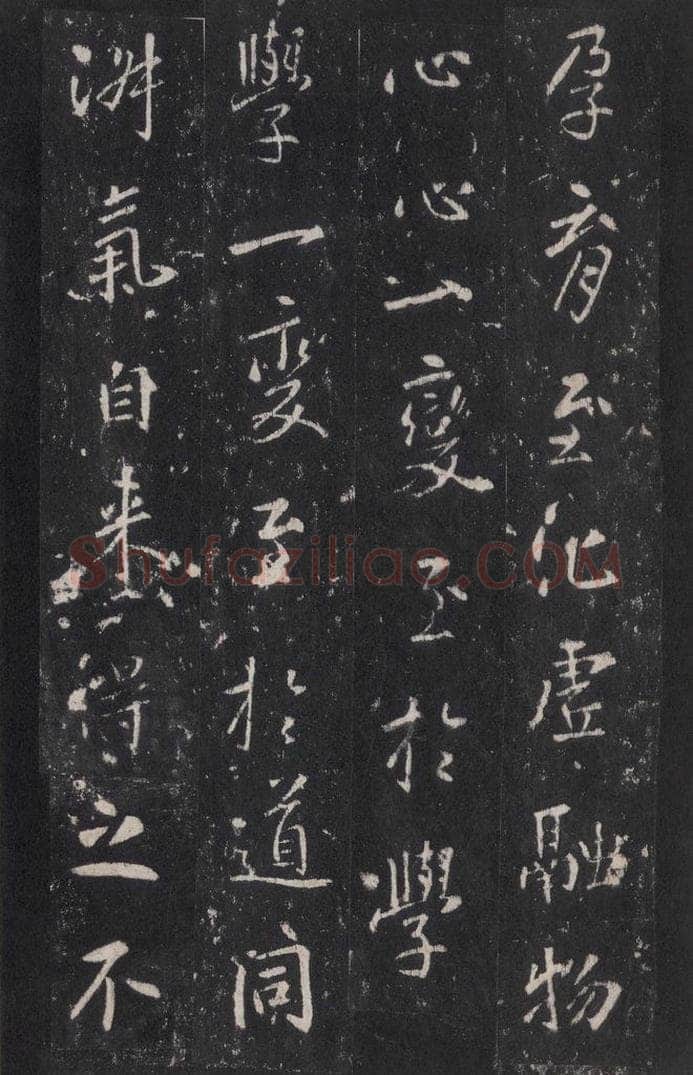 孕育至化虛融物
心心一變至於學
學一變至於道同
氣自得之不
Shufaziliao.COM